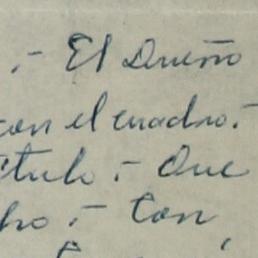 .- El Dueño
con el cuadro.-
título.- Que
cho.- Con